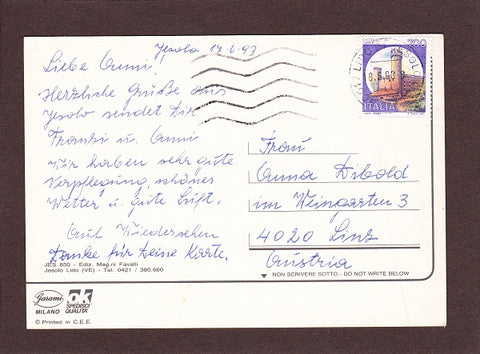 Jesolo 17.6.93
Liebe Anni!
Herzliche Grüße aus
Jesolo sendet Dir
Franzi u. Anni
Wir haben sehr gute
Verpflegung, schönes
Wetter u. gute Luft.
Auf Wiedersehen
Danke für Deine Karte.
JES 650 - Ediz. Mag.ni Favalli
Jesolo Lido (VE) - Tel. 0421 / 380.660
Garami
MILANO
OK
SPEDISCI
QUALITÀ
© Printed in C.E.E.
700
ITALIA
LIDO JESOLO
Frau
Anna Dibold
im Weingarten 3
4020 Linz
Austria
▼ NON SCRIVERE SOTTO - DO NOT WRITE BELOW